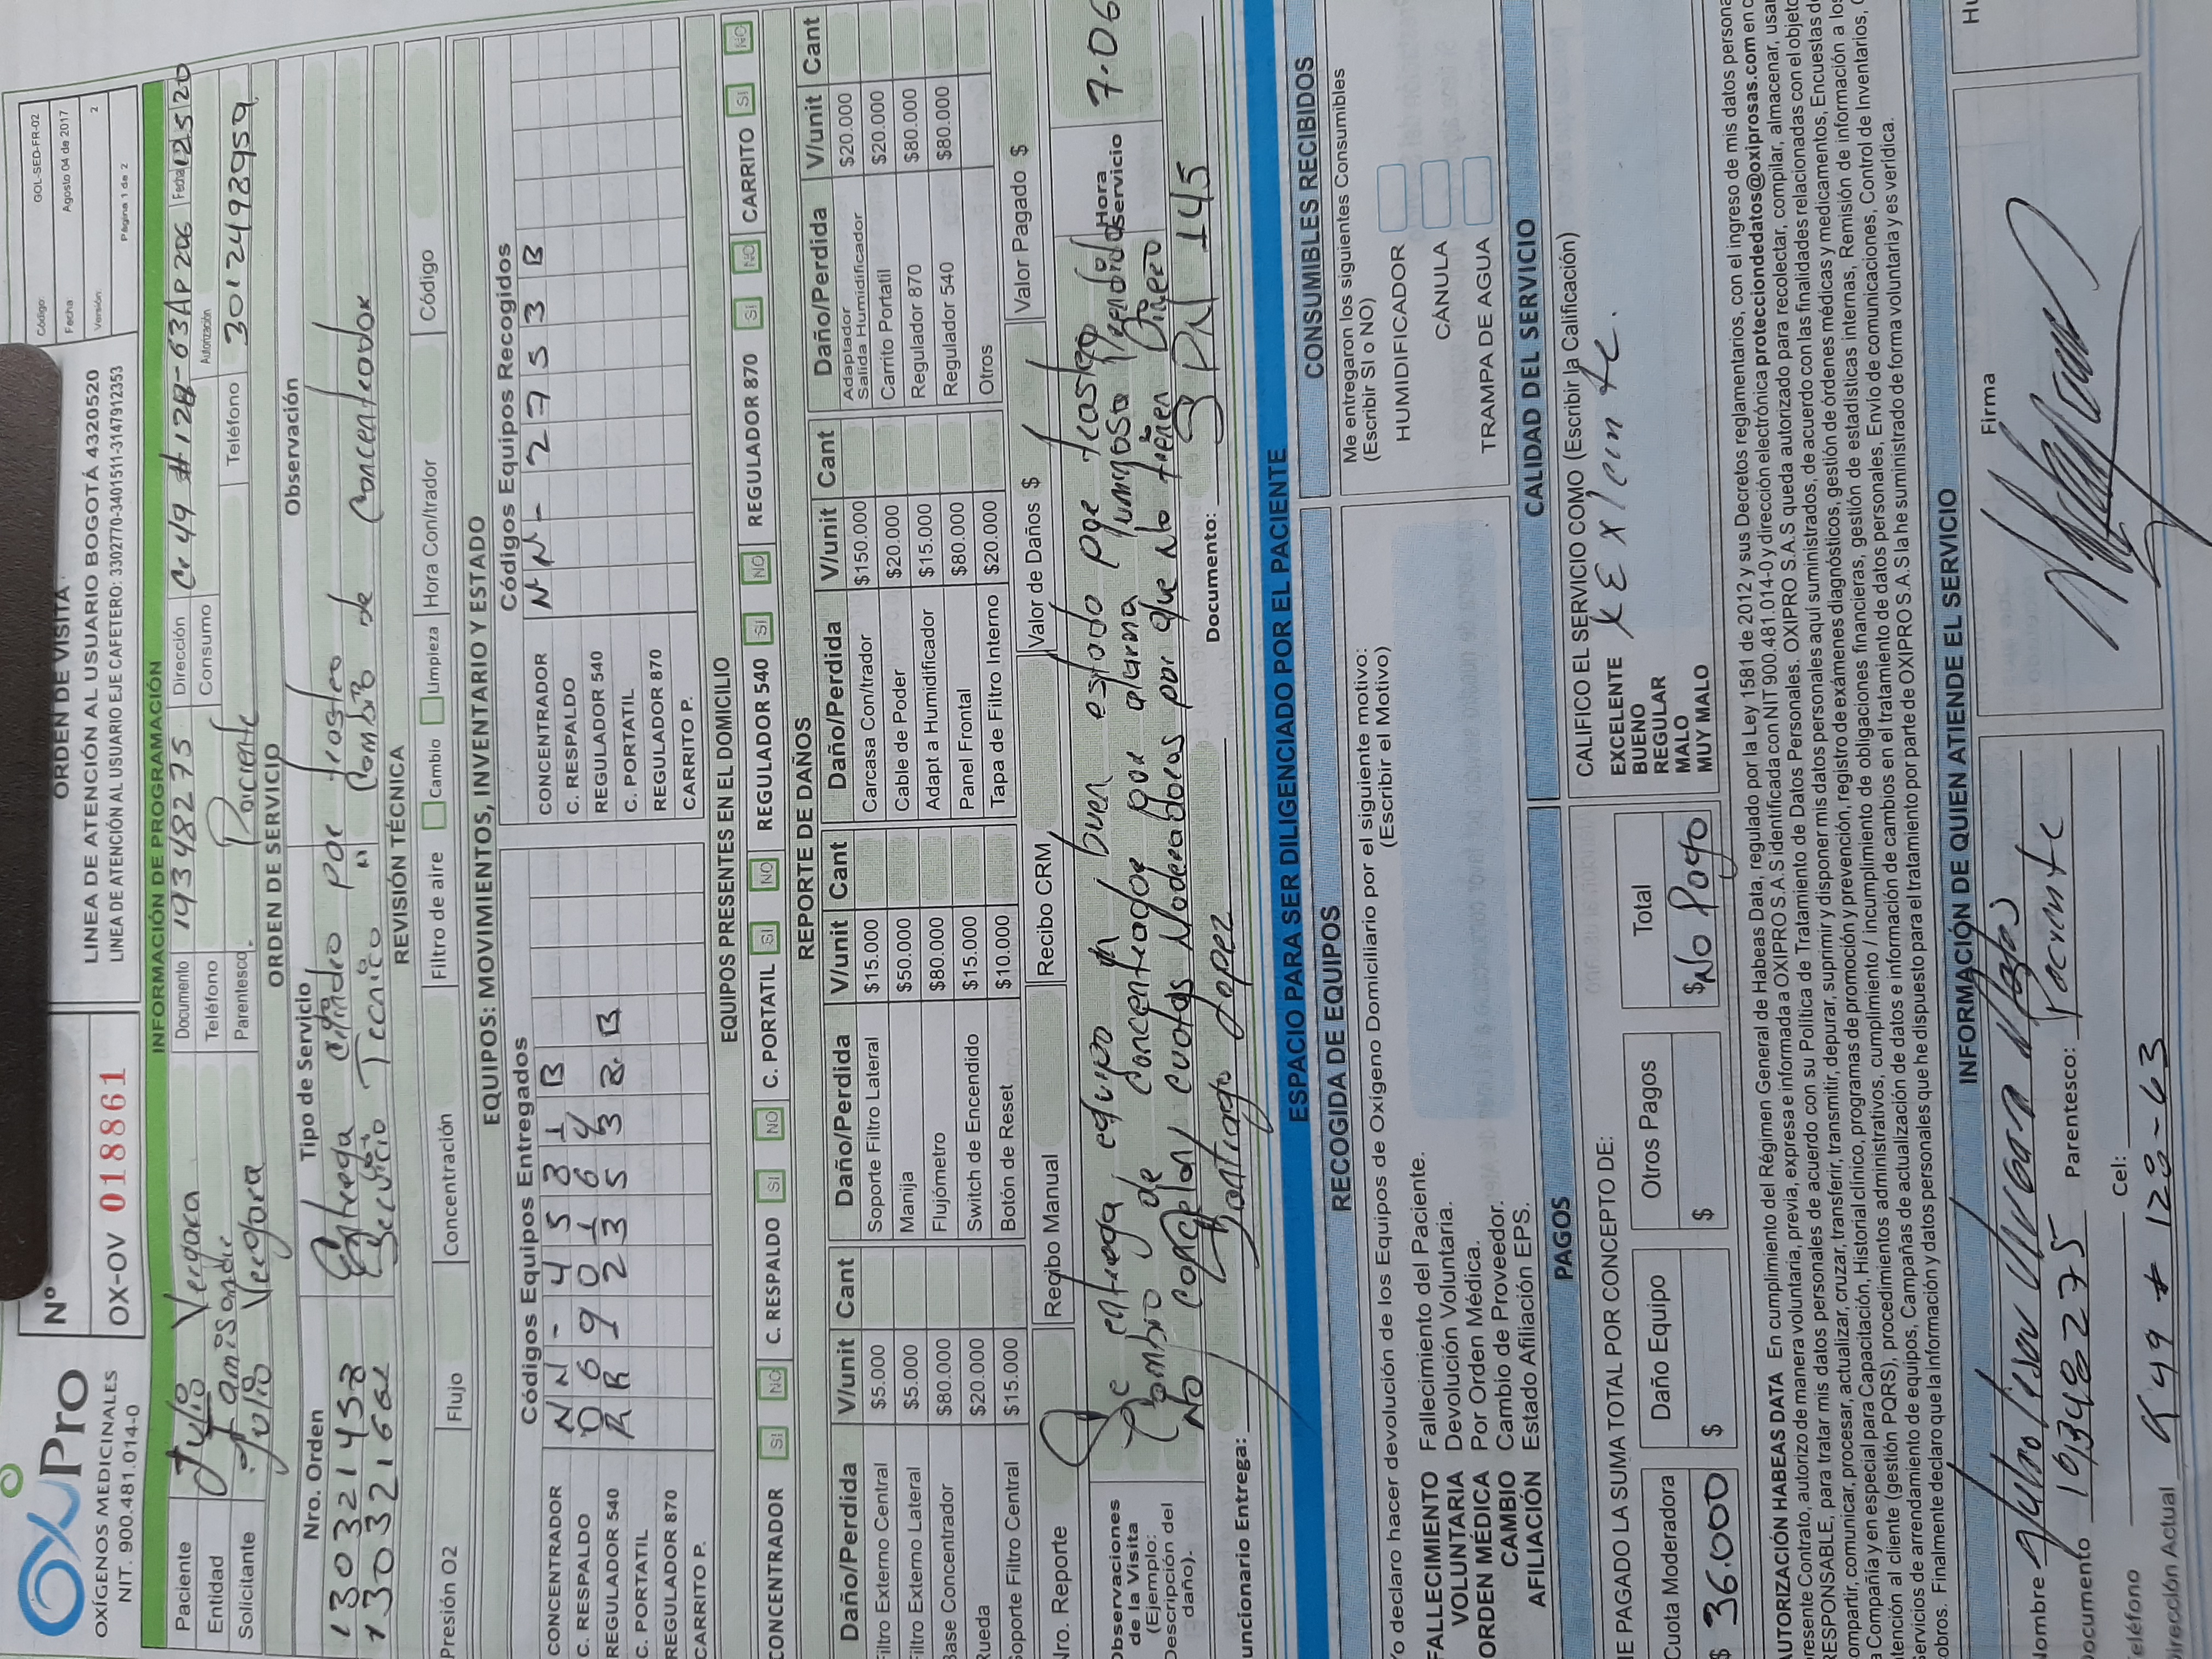 OxiPro
OXÍGENOS MEDICINALES
NIT. 900.481.014-0
Nº
OX-OV 018861
ORDEN DE VISITA
LINEA DE ATENCIÓN AL USUARIO BOGOTÁ 4320520
LINEA DE ATENCIÓN AL USUARIO EJE CAFETERO: 3302770-3401511-3147912353
Código: GOL-SED-FR-02
Fecha Agosto 04 de 2017
Versión: 2
Página 1 de 2
INFORMACIÓN DE PROGRAMACIÓN
Paciente Julio Vergara Documento 19348275 Dirección Cr 49 # 128-63 Ap 206 Fecha 12 5 20
Entidad Famisanar Teléfono Consumo Autorización
Solicitante Julio Vergara Parentesco Paciente Teléfono 3012498959
ORDEN DE SERVICIO
Nro. Orden Tipo de Servicio Observación
130321458 Entrega cilindro por trasteo
Servicio Tecnico " Cambio de Concentrador
REVISIÓN TÉCNICA
Presión O2 Flujo Concentración Filtro de aire Cambio Limpieza Hora Con/trador Código
EQUIPOS: MOVIMIENTOS, INVENTARIO Y ESTADO
Códigos Equipos Entregados Códigos Equipos Recogidos
CONCENTRADOR NN-4531B CONCENTRADOR NN-2753B
C. RESPALDO C. RESPALDO
REGULADOR 540 REGULADOR 540
C. PORTATIL C. PORTATIL
REGULADOR 870 REGULADOR 870
CARRITO P. CARRITO P.
EQUIPOS PRESENTES EN EL DOMICILIO
CONCENTRADOR SI NO C. RESPALDO SI NO C. PORTATIL SI NO REGULADOR 540 SI NO REGULADOR 870 SI NO CARRITO SI NO
REPORTE DE DAÑOS
Daño/Perdida V/unit Cant Daño/Perdida V/unit Cant Daño/Perdida V/unit Cant Daño/Perdida V/unit Cant
Filtro Externo Central $5.000 Soporte Filtro Lateral $15.000 Carcasa Con/trador $150.000 Adaptador Salida Humidificador $20.000
Filtro Externo Lateral $5.000 Manija $50.000 Cable de Poder $20.000 Carrito Portatil $20.000
Base Concentrador $80.000 Flujómetro $80.000 Adapt a Humidificador $15.000 Regulador 870 $80.000
Rueda $20.000 Switch de Encendido $15.000 Panel Frontal $80.000 Regulador 540 $80.000
Soporte Filtro Central $15.000 Botón de Reset $10.000 Tapa de Filtro Interno $20.000 Otros
Nro. Reporte Recibo Manual Recibo CRM Valor de Daños $ Valor Pagado $
Observaciones de la Visita (Ejemplo: Descripción del daño).
Se entrega equipo en buen estado por trasteo
Cambio de Concentrador por alarma
No cancelan cuotas Moderadoras por que no tienen Dinero
Hora Servicio 7.06
Funcionario Entrega: Santiago Lopez Documento: 145
ESPACIO PARA SER DILIGENCIADO POR EL PACIENTE
RECOGIDA DE EQUIPOS
Yo declaro hacer devolución de los Equipos de Oxígeno Domiciliario por el siguiente motivo:
(Escribir el Motivo)
FALLECIMIENTO Fallecimiento del Paciente.
VOLUNTARIA Devolución Voluntaria.
ORDEN MÉDICA Por Orden Médica.
CAMBIO Cambio de Proveedor.
AFILIACIÓN Estado Afiliación EPS.
CONSUMIBLES RECIBIDOS
Me entregaron los siguientes Consumibles
(Escribir SI o NO)
HUMIDIFICADOR
CÁNULA
TRAMPA DE AGUA
PAGOS
HE PAGADO LA SUMA TOTAL POR CONCEPTO DE:
Cuota Moderadora Daño Equipo Otros Pagos Total
$ 36.000 $ $ $ No Pago
CALIDAD DEL SERVICIO
CALIFICO EL SERVICIO COMO (Escribir la Calificación)
EXCELENTE
BUENO
REGULAR
MALO
MUY MALO
x Exlente.
AUTORIZACIÓN HABEAS DATA En cumplimiento del Régimen General de Habeas Data, regulado por la Ley 1581 de 2012 y sus Decretos reglamentarios, con el ingreso de mis datos persona
presente Contrato, autorizo de manera voluntaria, previa, expresa e informada a OXIPRO S.A.S identificada con NIT 900.481.014-0 y dirección electrónica protecciondedatos@oxiprosas.com en c
RESPONSABLE, para tratar mis datos personales de acuerdo con su Política de Tratamiento de Datos Personales. OXIPRO S.A.S queda autorizado para recolectar, compilar, almacenar, usar
compartir, comunicar, procesar, actualizar, cruzar, transferir, transmitir, depurar, suprimir y disponer mis datos personales aquí suministrados, de acuerdo con las finalidades relacionadas con el objeto
a Compañía y en especial para Capacitación, Historial clínico, programas de promoción y prevención, registro de exámenes diagnósticos, gestión de órdenes médicas y medicamentos, Encuestas de
atención al cliente (gestión PQRS), procedimientos administrativos, cumplimiento / incumplimiento de obligaciones financieras, gestión de estadísticas internas, Remisión de información a los
Servicios de arrendamiento de equipos, Campañas de actualización de datos e información de cambios en el tratamiento de datos personales, Envío de comunicaciones, Control de Inventarios,
cobros. Finalmente declaro que la información y datos personales que he dispuesto para el tratamiento por parte de OXIPRO S.A.S la he suministrado de forma voluntaria y es verídica.
INFORMACIÓN DE QUIEN ATIENDE EL SERVICIO
Nombre Julio Cesar Vergara
Documento 19348275 Parentesco: Paciente
Teléfono Cel:
Dirección Actual Cr 49 # 128-63
Firma
Hu